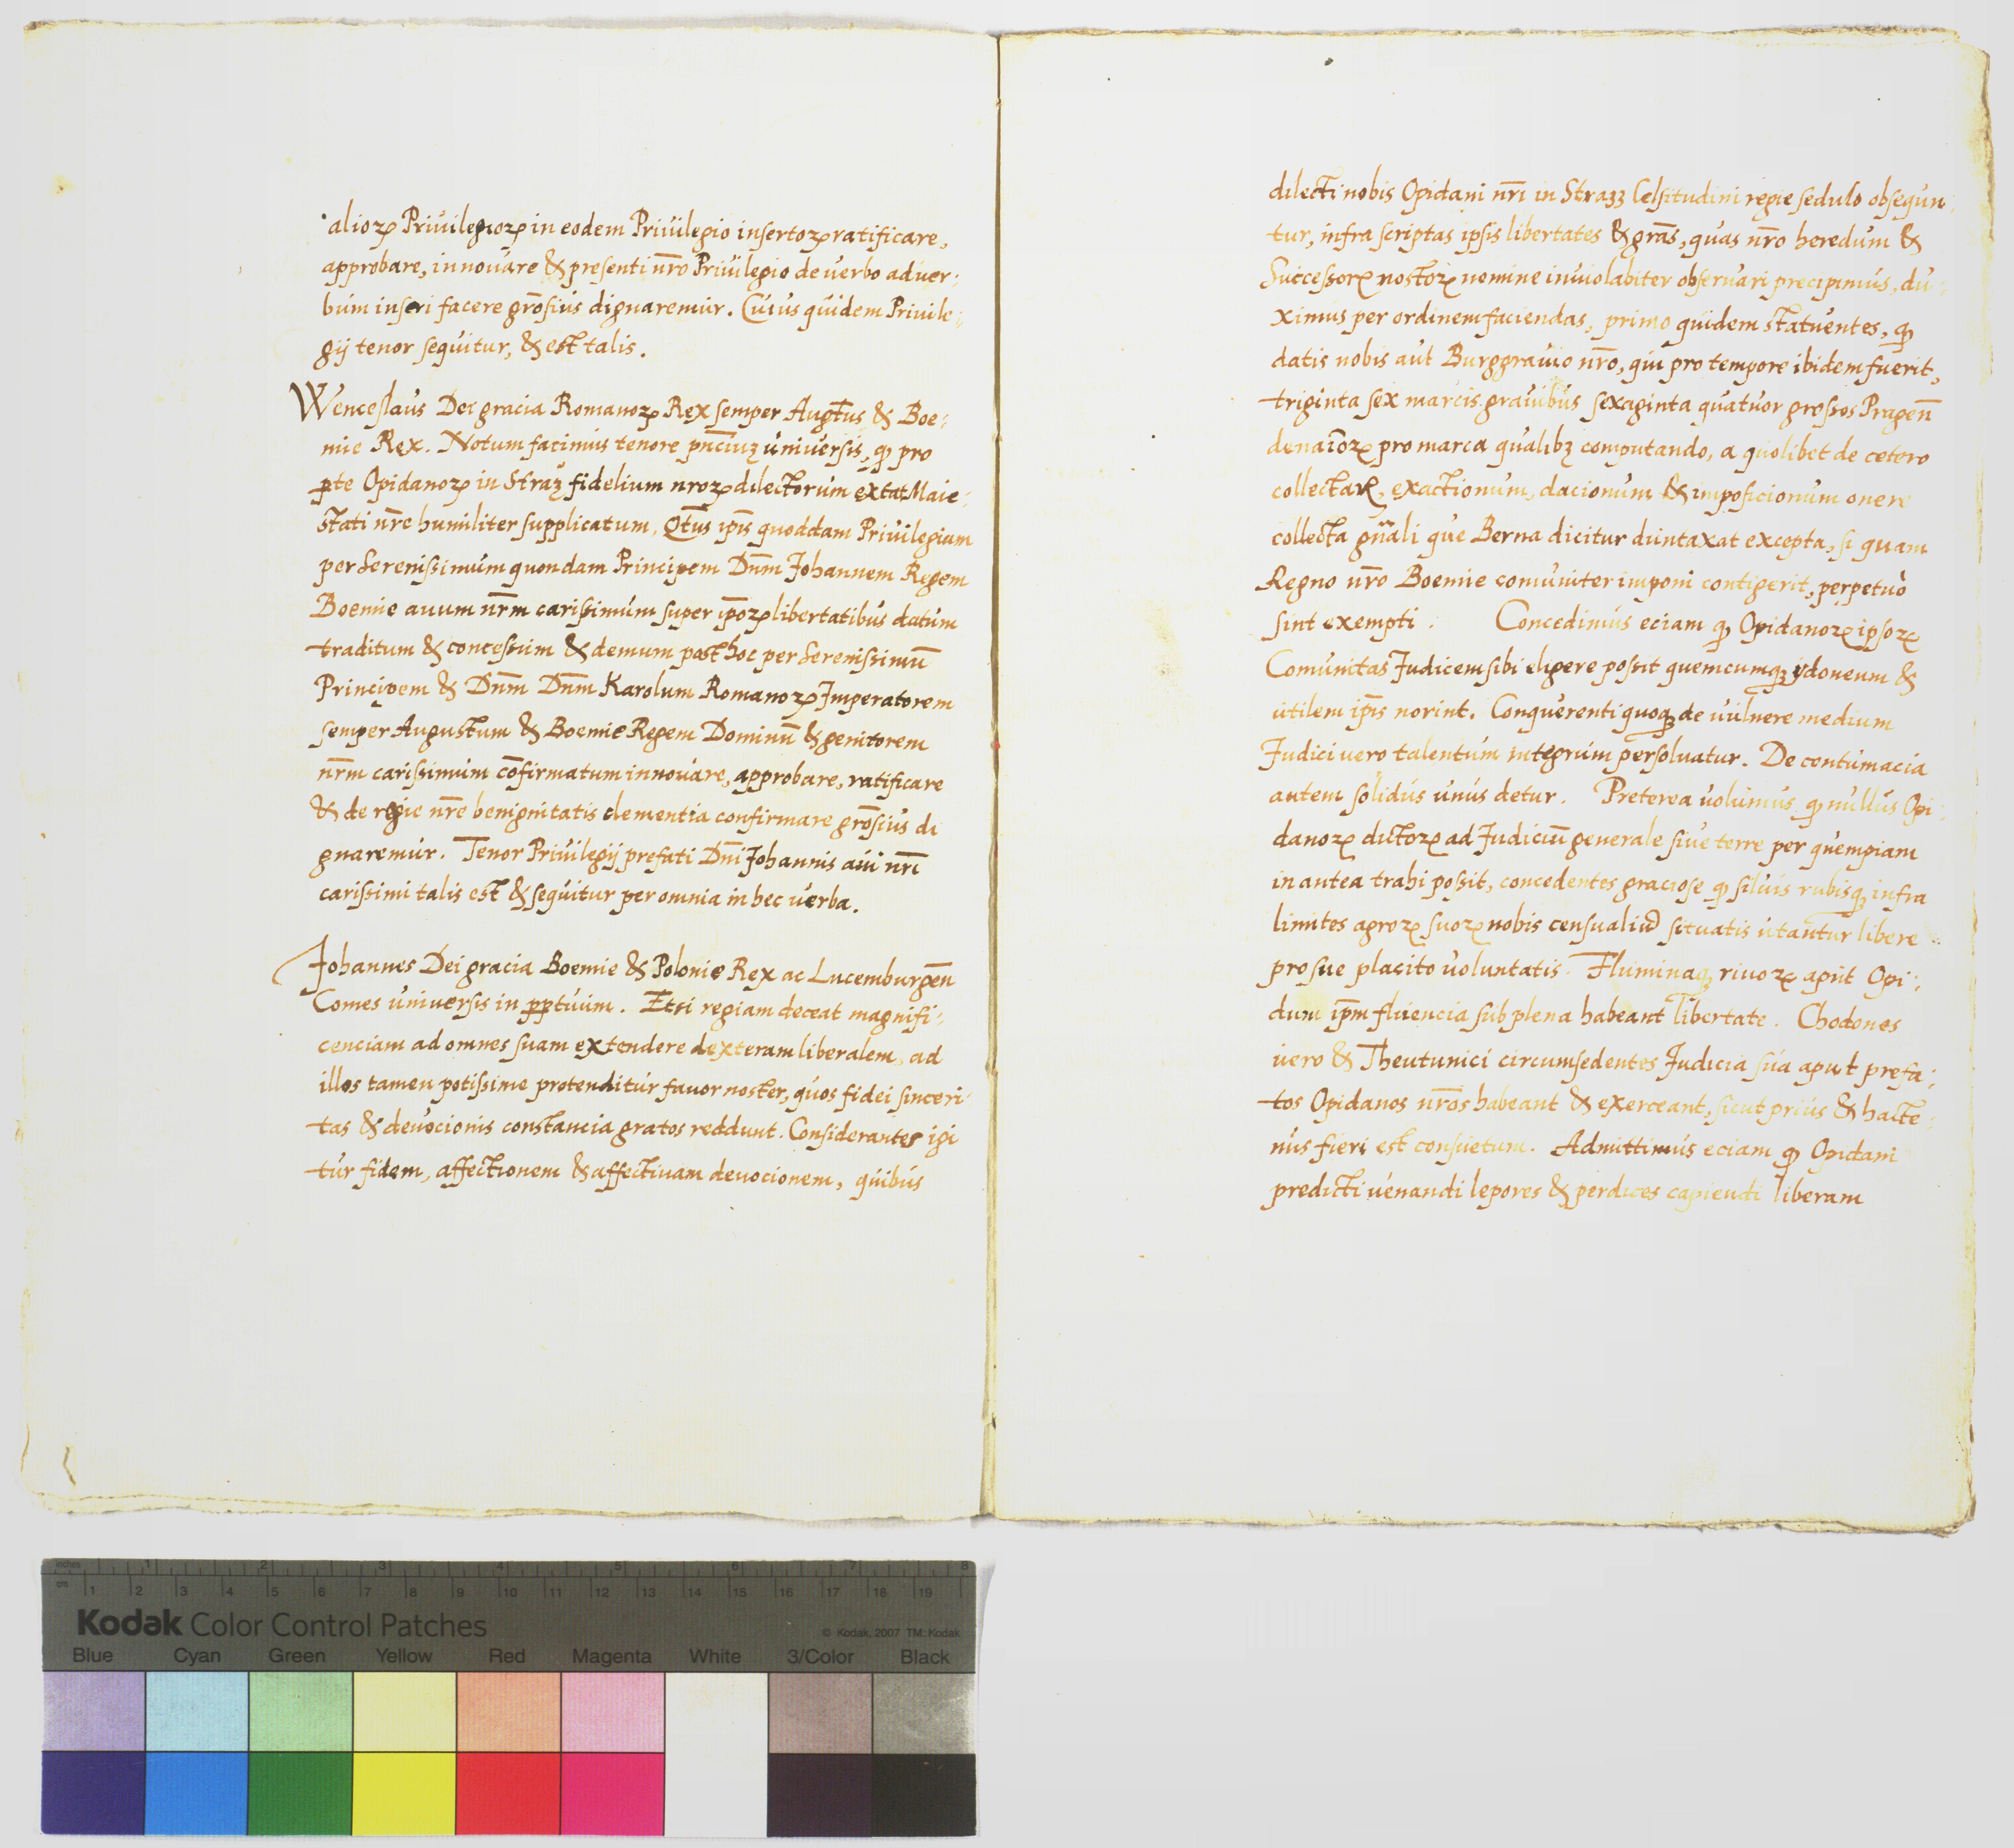 alioꝝ Privilegioꝝ in eodem Privilegio insertoꝝ ratificare,
approbare, innovare & presenti nr̄o Privilegio de verbo ad ver:
bum inseri facere gr̄osius dignaremur. Cuius quidem Privile:
gij tenor sequitur, & est talis.
Wenceslaus Dei gracia Romanoꝝ Rex semper Augt̄us & Boe:
mie Rex. Notum facimus tenore pn̄ciuȝ universis, ꝙ pro
ꝑte Opidanoꝝ in Straȝ fidelium nroꝝ dilectorum extat Maie:
stati nr̄e humiliter supplicatum, Qt̄us ip̄is quoddam Privilegium
per Serenissimum quondam Principem Dn̄m Johannem Regem
Boemie avum nr̄m carissimum super ip̄oꝝ libertatibus datum
traditum & concessum & demum post hoc per Serenissimū
Principem & Dn̄m Dn̄m Karolum Romanoꝝ Imperatorem
semper Augustum & Boemie Regem Dominū & genitorem
nr̄m carissimum cōfirmatum innovare, approbare, ratificare
& de regie nr̄e benignitatis clementia confirmare gr̄osius di
gnaremur. Tenor Privilegij prefati Dn̄i Johannis avi nr̄i
carissimi talis est & sequitur per omnia in hec verba.
Johannes Dei gracia Boemie & Polonie Rex ac Lucemburgen̄
Comes universis in ꝑꝑtuum. Etsi regiam deceat magnifi:
cenciam ad omnes suam extendere dexteram liberalem, ad
illos tamen potissime protenditur favor noster, quos fidei sinceri:
tas & devocionis constancia gratos reddunt. Considerantes igi
tur fidem, affectionem & affectivam devocionem, quibus
dilecti nobis Opidani nr̄i in Straȝȝ Celsitudini regie sedulo obsequn:
tur, infra scriptas ipsis libertates & grās, quas nr̄o heredum &
Successorꝝ nostoꝝ nomine inviolabiter observari precipimus, du:
ximus per ordinem faciendas, primo quidem statuentes, ꝙ
datis nobis aut Burggravio nr̄o, qui pro tempore ibidem fuerit,
triginta sex marcis gravibus sexaginta quatuor grossos Pragen̄
denaīoꝝ pro marca qualibȝ computando, a quolibet de cetero
collectaꝝ, exactionum, dacionum & imposicionum onere
collecta gn̄ali que Berna dicitur duntaxat excepta, si quam
Regno nr̄o Boemie comuniter imponi contigerit, perpetuò
sint exempti. Concedimus eciam ꝙ Opidanoꝝ ipsoꝝ
Comunitas Judicem sibi eligere possit quemcumqȝ ydoneum &
utilem ip̄is norint. Conquerenti quoqȝ de vulnere medium
Judici vero talentum integrum persolvatur. De contumacia
autem solidus unus detur. Preterea volumus ꝙ nullus Opi:
danoꝝ dictoꝝ ad Judiciū generale sive terre per quempiam
in antea trahi possit, concedentes graciose ꝙ silvis rubisqȝ infra
limites agroꝝ suoꝝ nobis censualiū situatis utantur libere
pro sue placito voluntatis. Fluminaqȝ rivoꝝ aput Opi:
dum ip̄m fluencia sub plena habeant libertate. Chodones
vero & Theutunici circumsedentes Judicia sua aput prefa:
tos Opidanos nr̄os habeant & exerceant, sicut prius & hacte:
nus fieri est consuetum. Admittimus eciam ꝙ Opidani
predicti venandi lepores & perdices capiendi liberam
Kodak Color Control Patches
© Kodak, 2007 TM: Kodak
Blue Cyan Green Yellow Red Magenta White 3/Color Black
inches 1 2 3 4 5 6 7 8
cm 1 2 3 4 5 6 7 8 9 10 11 12 13 14 15 16 17 18 19